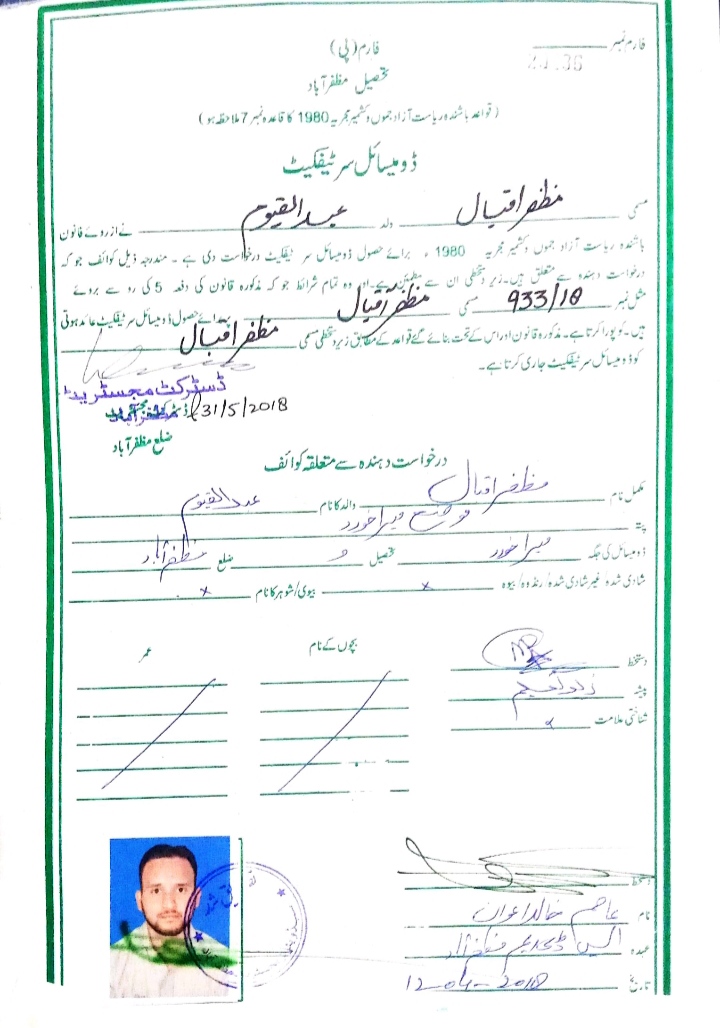 فارم نمبر
فارم (پی)
تحصیل مظفرآباد
(قواعد باشندہ ریاست آزاد جموں و کشمیر مجریہ 1980 کا قاعدہ نمبر 7 ملاحظہ ہو)
ڈومیسائل سرٹیفکیٹ
مسمی مظفر اقبال ولد عبدالقیوم نے ازروئے قانون
باشندہ ریاست آزاد جموں و کشمیر مجریہ 1980ء برائے حصول ڈومیسائل سرٹیفکیٹ درخواست دی ہے ۔ مندرجہ ذیل کوائف جو کہ
درخواست دہندہ سے متعلق ہیں۔ زیر دستخطی ان سے مطمئن ہے۔ اور وہ تمام شرائط جو کہ مذکورہ قانون کی دفعہ 5 کی رو سے بروئے
مثل نمبر 933/18 مسمی مظفر اقبال برائے حصول ڈومیسائل سرٹیفکیٹ عائد ہوتی
ہیں۔ کو پورا کرتا ہے۔ مذکورہ قانون اور اس کے تحت بنائے گئے قواعد کے مطابق زیر دستخطی مسمی مظفر اقبال
کو ڈومیسائل سرٹیفکیٹ جاری کرتا ہے۔
ڈسٹرکٹ مجسٹریٹ
31/5/2018
ضلع مظفرآباد
درخواست دہندہ سے متعلقہ کوائف
مکمل نام مظفر اقبال والد کا نام عبدالقیوم
پتہ موضع میرا خورد
ڈومیسائل کی جگہ میرا خورد تحصیل و ضلع مظفرآباد
شادی شدہ/غیر شادی شدہ/رنڈوہ/بیوہ x بیوی/شوہر کا نام x
دستخط
بچوں کے نام
عمر
پیشہ
شناختی علامت
دستخط
نام عاصم خالد اعوان
عہدہ
تاریخ 12-04-2018